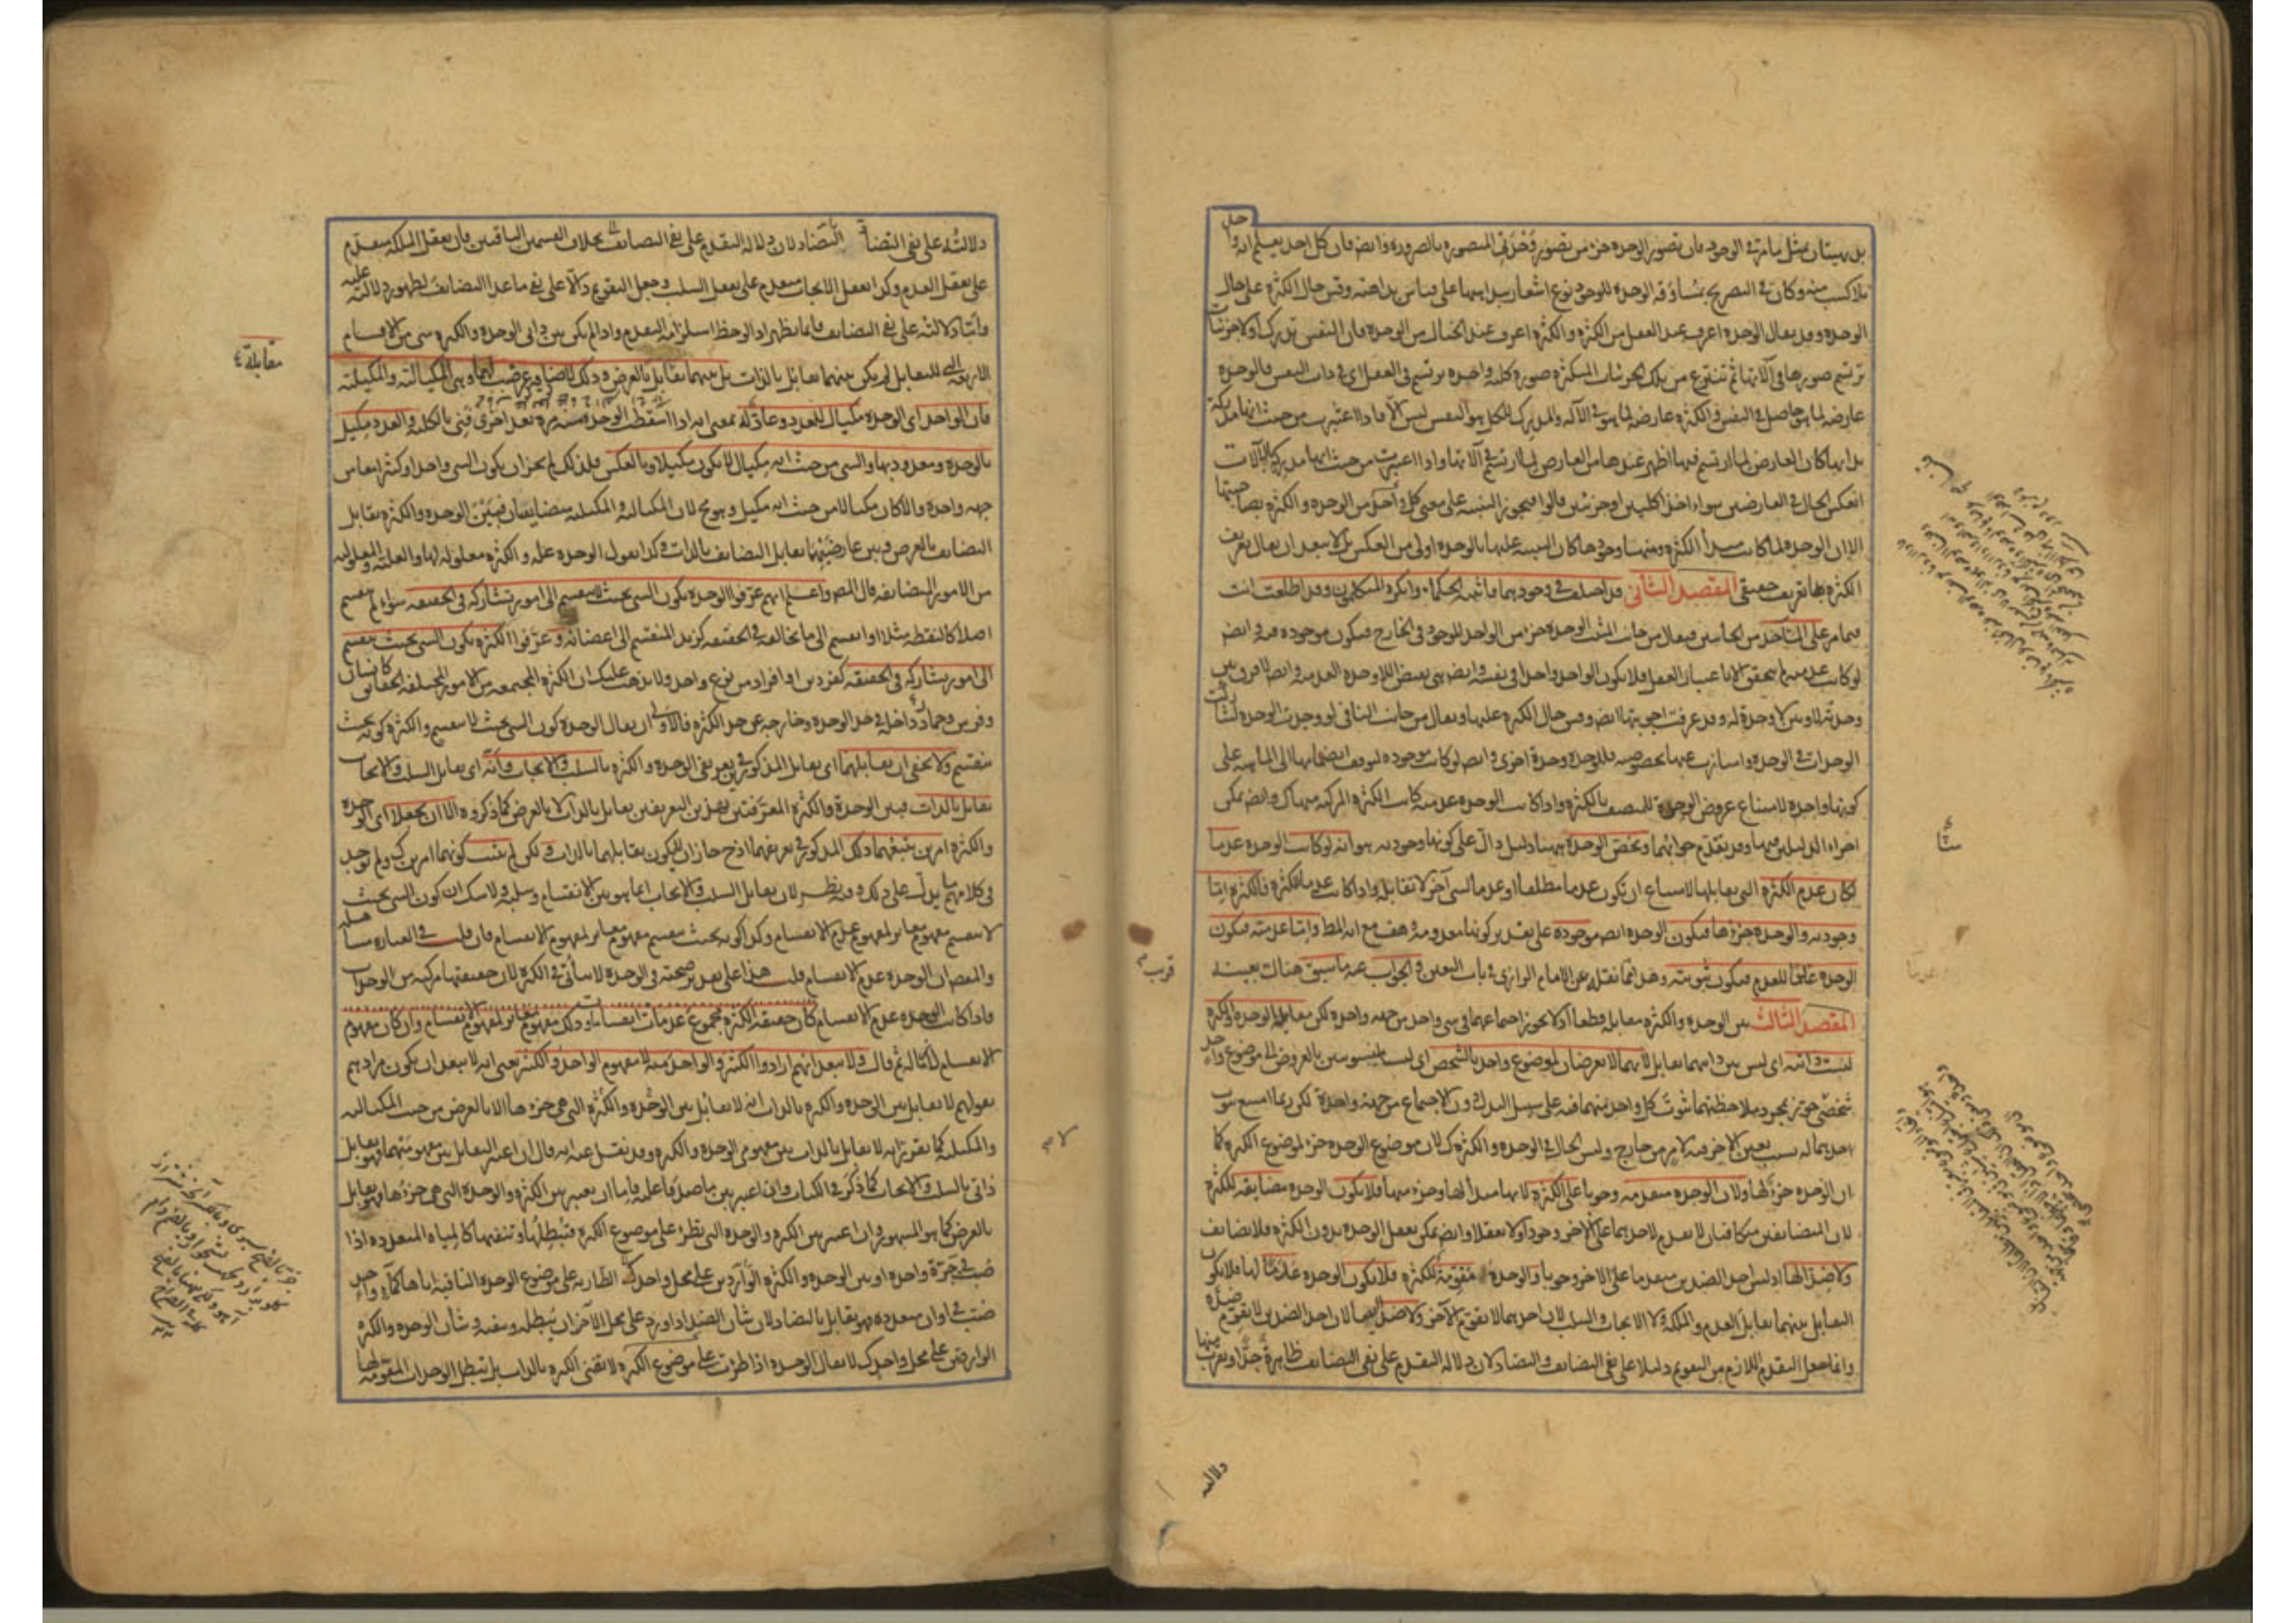 بل يستبان بمثل ما مر في الوجود فان تصور الوحدة جزء من تصور وحدتي المتصورة بالضرورة وايضا فان كل احد يعلم انه واحد
بلا كسب منه وكان في التصريح بمساوقة الوحدة للوجود نوع اشعار ببداهتها على قياس بداهته وقس حال الكثرة على حال
الوحدة وقد يقال الوحدة اعرف عند العقل من الكثرة والكثرة اعرف عند الخيال من الوحدة فان النفس تدرك اولا جزئيات
ترتسم صورها في آلاتها ثم تنتزع من تلك الجزئيات المتكثرة صورة كلية واحدة ترتسم في العقل اي في ذات النفس فالوحدة
عارضة لما هو حاصل في النفس والكثرة عارضة لما هو في الآلة والمدرك للكل هو النفس ليس الا فاذا اعتبرت من حيث انها مدركة
بذاتها كان العارض لما ارتسم فيها اظهر عندها من العارض لما ارتسم في آلاتها واذا اعتبرت من حيث انها مدركة بالآلات
انعكس الحال في العارضين سواء اخذا كليين او جزئيين قالوا فيجوز التنبيه على معنى كل واحد من الوحدة والكثرة بصاحبتها
الا ان الوحدة لما كانت مبدأ الكثرة ومنها وجودها كان التنبيه عليها بالوحدة اولى من العكس بل لا يبعد ان يقال تعريف
الكثرة بها تعريف حقيقي المقصد الثاني قد اختلف في وجودهما فاثبته الحكماء وانكره المتكلمون وقد اطلعت انت
فيما مر على المأخذ من الجانبين فيقال من جانب المثبت الوحدة جزء من الواحد الموجود في الخارج فيكون موجودة فيه وايضا
لو كانت عدمية لم تتحقق الا باعتبار العقل فلا يكون الواحد واحدا في نفسه وايضا هي نقيض اللاوحدة العدمية وايضا لا فرق بين
وحدته لا وبين لا وحدة له وقد عرفت اجوبتها ايضا وقس حال الكثرة عليها ويقال من جانب النافي لو وجدت الوحدة لشاركت
الوحدات في الوحدة وامتازت عنها بخصوصية فللوحدة وحدة اخرى وايضا لو كانت موجودة لتوقف انضمامها الى الماهية على
كونها واحدة لامتناع عروض الوحدة للمتصف بالكثرة واذا كانت الوحدة عدمية كانت الكثرة المركبة منها كذلك وايضا يمكن
اجراء الدليلين فيها وقد تقدم جوابهما ويخص الوحدة ههنا دليل دال على كونها وجودية هو انه لو كانت الوحدة عدما
لكان عدم الكثرة التي يقابلها لامتناع ان تكون عدما مطلقا او عدما لشيء آخر لا تقابله واذا كانت عدما للكثرة فالكثرة اما
وجودية والوحدة جزؤها فيكون الوحدة ايضا موجودة على تقدير كونها معدومة هف مع انه المط واما عدمية فيكون
الوحدة عدما للعدم فيكون ثبوتية وهذا مما نقل عن الامام الرازي في باب التعين والجواب عنه ما سبق هناك بعينه
المقصد الثالث بين الوحدة والكثرة مقابلة قطعا اذ لا يجوز اجتماعهما في شيء واحد من جهة واحدة لكن مقابلة الوحدة والكثرة
ليست ذاتية اي ليس بين ذاتيهما تقابل لانهما لا تعرضان لموضوع واحد بالشخص اي ليستا منسوبتين بالعروض الى موضوع واحد
شخصي حتى يجوز بمجرد ملاحظتهما ثبوت كل واحد منهما فيه على سبيل البدل دون الاجتماع من جهة واحدة لكن ربما امتنع ثبوت
احدهما له بسبب تعين الآخر فيه لامر من خارج وليس الحال في الوحدة والكثرة كذلك لان موضوع الوحدة جزء لموضوع الكثرة كما
ان الوحدة جزء لها ولان الوحدة متقدمة وجوبا على الكثرة لانها مبدأ لها وجزء منها فلا يكون الوحدة مضايفة للكثرة
لان المتضايفين متكافئان لا تقدم لاحدهما على الآخر وجودا ولا تعقلا وايضا يمكن تعقل الوحدة بدون الكثرة فلا تضايف
ولا ضدا لها اذ ليس احد الضدين متقدما على الآخر وجوبا والوحدة مقومة للكثرة فلا يكون الوحدة عدما لها فلا يكون
التقابل بينهما تقابل العدم والملكة ولا الايجاب والسلب لان احدهما لا يقوم الآخر ولا ضدا لها لان احد الضدين لا يقوم ضده
وانما جعل التقدم اللازم من التقويم دليلا على نفي التضايف والتضاد لان دلالة التقدم على نفي التضايف ظاهرة جدا ويقرب منها
دلالته
دلالته على نفي التضاد لان دلالة التقدم على نفي التضايف بخلاف القسمين الباقيين فان تعقل الملكة متقدم
على تعقل العدم وكذا تعقل الايجاب متقدم على تعقل السلب وجعل التقويم دالا على نفي ما عدا التضايف لظهور دلالته عليه
واما دلالته على نفي التضايف فانما يظهر اذا لوحظ استلزامه التقدم واذا لم يكن بين ذاتي الوحدة والكثرة شيء من الاقسام
الاربعة للتقابل لم يكن بينهما تقابل بالذات بل بينهما تقابل بالعرض وذلك لاضافة عرضت لهما وهي المكيالية والمكيلية
فان الواحد اي الوحدة مكيال للعدد وعاد له بمعنى انه اذا اسقطت الوحدة منه مرة بعد اخرى فني بالكلية والعدد مكيل
بالوحدة ومعدود بها والشيء من حيث انه مكيال لا يكون مكيلا وبالعكس فلذلك لم يجز ان يكون الشيء واحدا وكثيرا معا من
جهة واحدة والا كان مكيالا من حيث انه مكيل وهو مح لان المكيالية والمكيلية متضايفان فبين الوحدة والكثرة تقابل
التضايف بالعرض وبين عارضيهما تقابل التضايف بالذات وكذا تقول الوحدة علة والكثرة معلولة لها والعلية والمعلولية
من الامور المتضايفة قال المص واعلم انهم عرفوا الوحدة بكون الشيء بحيث لا ينقسم الى امور تشاركه في الحقيقة سواء لم ينقسم
اصلا كالنقطة مثلا او انقسم الى ما تخالفه في الحقيقة كزيد المنقسم الى اعضائه وعرفوا الكثرة بكون الشيء بحيث ينقسم
الى امور يشاركه في الحقيقة كفردين او افراد من نوع واحد ولا يذهب عليك ان الكثرة المجتمعة من الامور المختلفة الحقائق كانسان
وفرس وحمار داخلة في حد الوحدة وخارجة عن حد الكثرة فالاولى ان يقال الوحدة كون الشيء بحيث لا ينقسم والكثرة كونه بحيث
ينقسم ولا يخفى ان تقابلهما اي تقابل المذكورين في تعريفي الوحدة والكثرة بالسلب والايجاب وانه اي تقابل السلب والايجاب
تقابل بالذات فبين الوحدة والكثرة المعرفتين بهذين التعريفين تقابل بالذات لا بالعرض كما ذكروه الا ان يجعلا اي الوحدة
والكثرة امرين يتبعهما ذلك المذكور في تعريفهما اذ ح جاز ان لا يكون تقابلهما بالذات ولكن لم يثبت كونهما امرين كذلك ولم يوجد
في كلامهم ما يدل على ذلك وفيه نظر لان تقابل السلب والايجاب انما هو بين الانقسام وسلبه ولا شك ان كون الشيء بحيث
لا ينقسم مفهوم مغاير لمفهوم عدم الانقسام وكذا كونه بحيث ينقسم مفهوم مغاير لمفهوم الانقسام فان قلت في العبارة مساهلة
والمقصود ان الوحدة عدم الانقسام قلت هذا على تقدير صحته في الوحدة لا يتأتى في الكثرة لان حقيقتها مركبة من الوحدات
فاذا كانت الوحدة عدم الانقسام كان حقيقة الكثرة مجموع عدمات انقسامات وذلك مفهوم مغاير لمفهوم الانقسام وان كان مفهوم
الانقسام لازما له ثم قال ولا يبعد انهم ارادوا الكثرة والواحد منه لا مفهوم الواحد والكثير يعني انه لا يبعد ان يكون مرادهم
بقولهم لا تقابل بين الوحدة والكثرة بالذات انه لا تقابل بين الوحدة والكثرة التي هي جزء لها الا بالعرض من حيث المكيالية
والمكيلية كما تقرر لانه لا تقابل بالذات بين مفهومي الوحدة والكثرة وقد نقل عنه انه قال ان اعتبر التقابل بين مفهوميهما فهو تقابل
ذاتي بالسلب والايجاب كما ذكر في الكتاب وان اعتبر بين ما صدقا عليه فاما ان يعتبر بين الكثرة والوحدة التي هي جزؤها فهو تقابل
بالعرض كما هو المشهور وان اعتبر بين الكثرة والوحدة التي تطرأ على موضوع الكثرة فتبطلها وتنفيها كالمياه المتعددة اذا
صبت في جرة واحدة او بين الوحدة والكثرة الواردتين على محل واحد الطارية على موضوع الوحدة النافية اياها كماء واحد
صب في اوان متعددة فهو تقابل بالتضاد لان شان الضد اذا ورد على محل الآخر ان يبطله وينفيه وشان الوحدة والكثرة
الواردتين على محل واحد كذلك لا يقال الوحدة اذا طرأت على موضوع الكثرة لا تنفي الكثرة بالذات بل تبطل الوحدات المقومة لها
مقابلة ٤